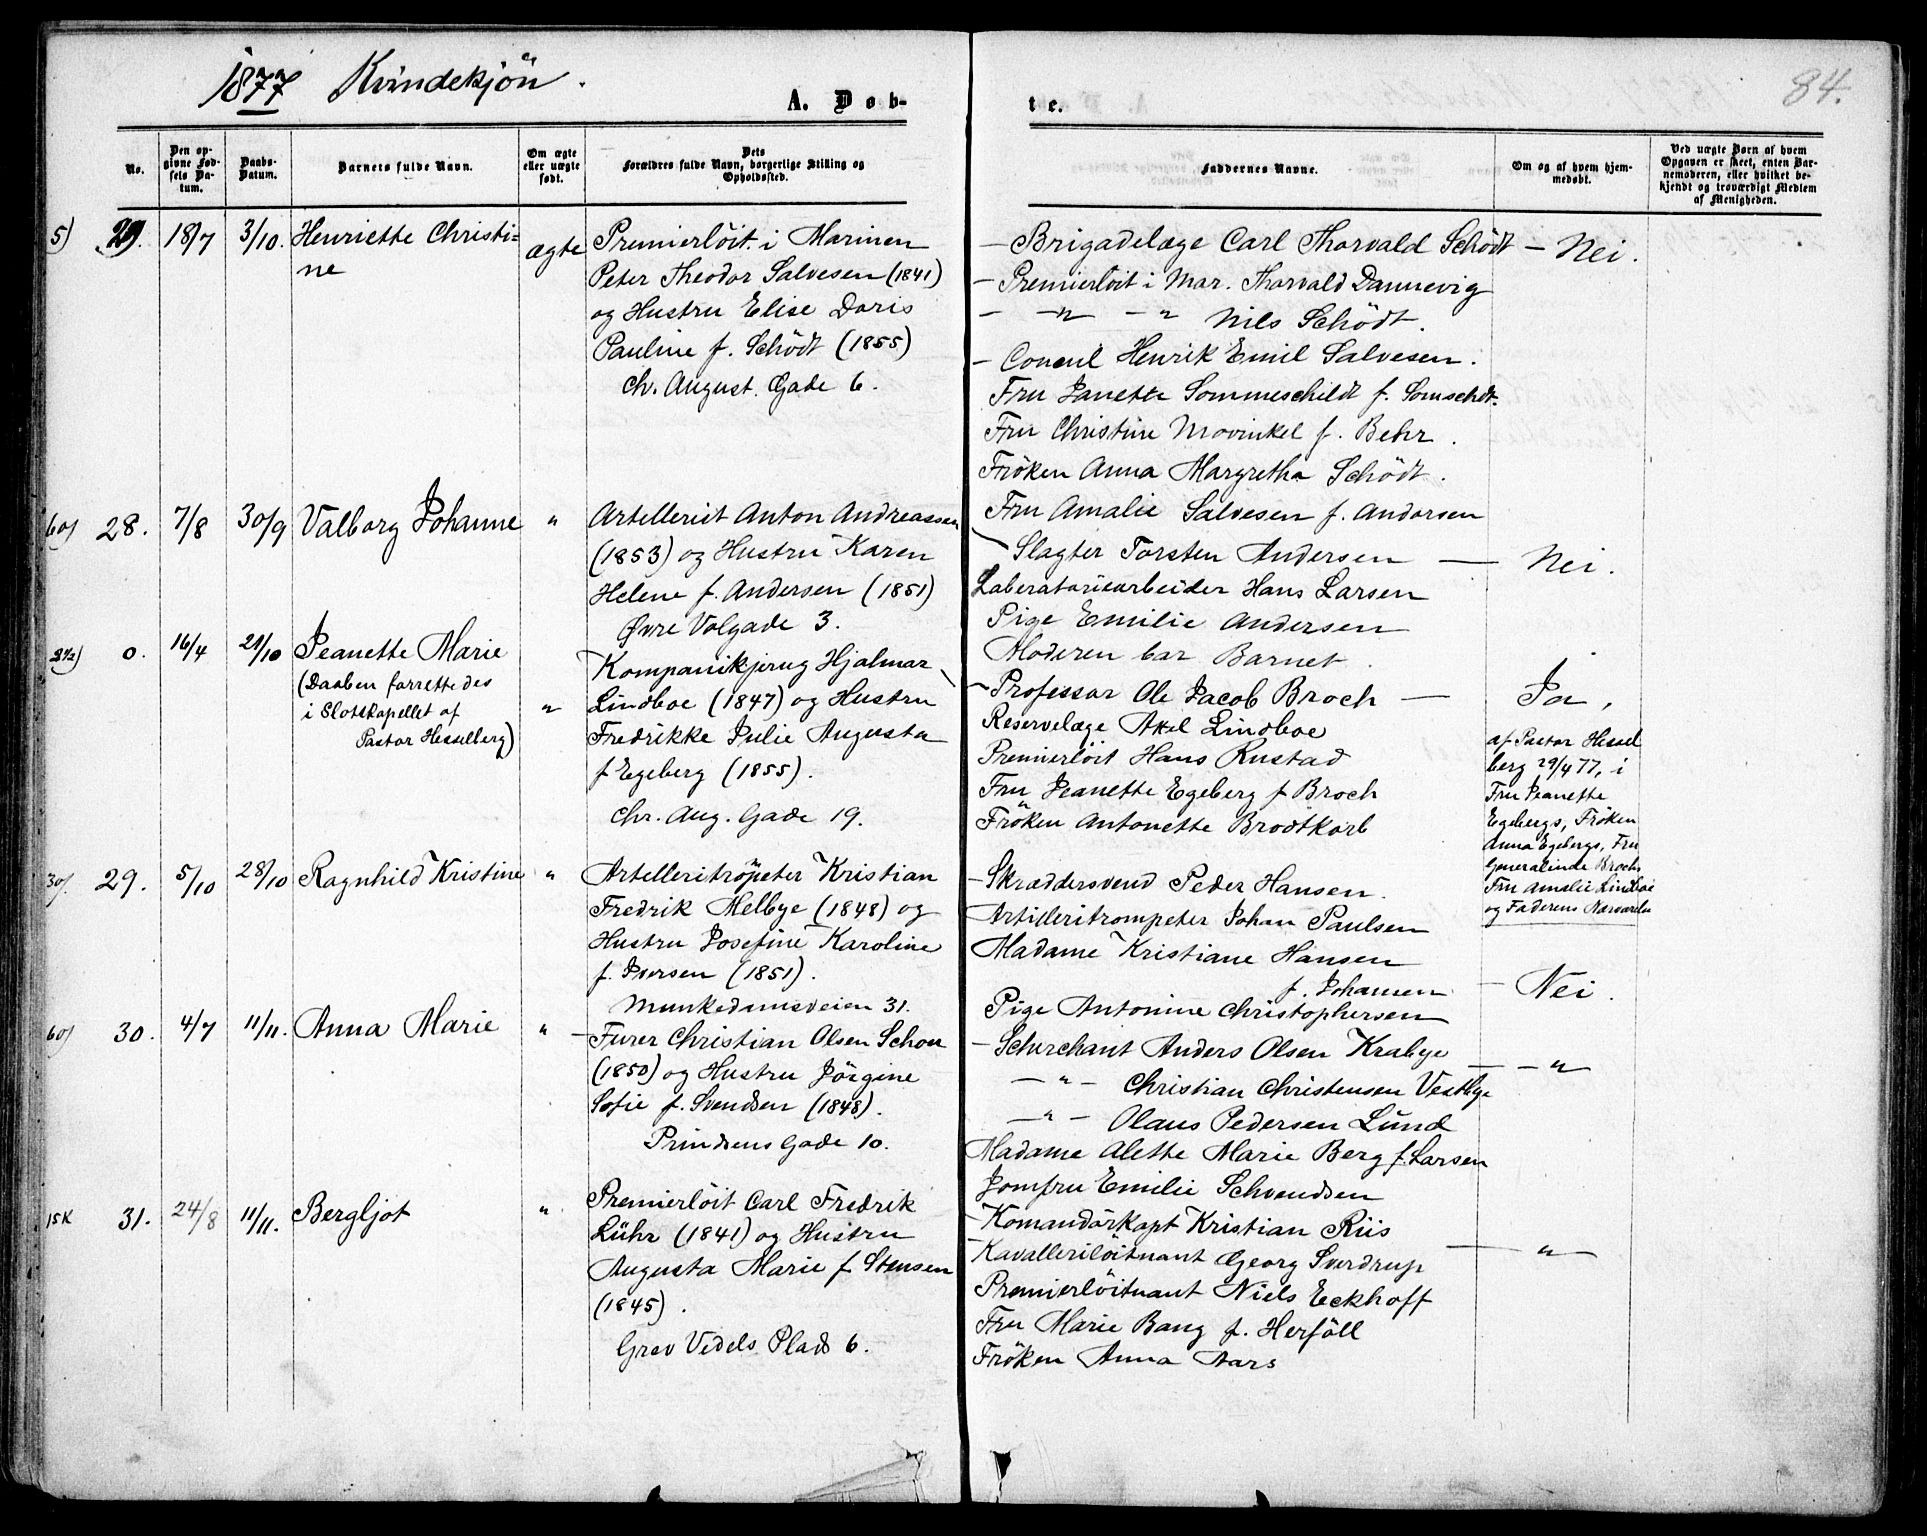 1877 Kvindekjön.
84.
A. Døb-
te.
No.
Den op-
givne Fød-
sels Da-
tum.
Daabs-
Datum.
Barnets fulde Navn.
Om ægte
eller uægte
født.
Dets
Forældres fulde Navn, borgerlige Stilling og
Opholdssted.
Faddernes Navne.
Om og af hvem hjem-
medøbt.
Ved uægte Børn af hvem
Opgaven er skeet, enten Bar-
nemoderen, eller hvilket be-
kjendt og troværdigt Medlem
af Menigheden.
5)
18/7
3/10.
Henriette Christi=
ne
ægte
Premierlöit. i Marinen
Peter Theodor Salvesen (1841)
og Hustru Elise Doris
Pauline f. Schödt (1855)
Ch. August. Gade 6.
- Brigadelæge Carl Thorvald Schödt
- Premierlöit i Mar. Thorvald Dannevig
- -"- -" Nils Schödt.
- Consul Henrik Emil Salvesen.
Fru Janette Sommeschildt f. Somschdt.
Fru Christine Movinkel f. Behr.
Fröken Anna Margretha Schödt.
Fru Amalie Salvesen f. Andorsen
- Nei.
60)
28.
7/8
30/9
Valborg Johanne
"
Artellerist Anton Andreassen
(1853) og Hustru Karen
Helene f. Andersen (1851)
Øvre Volgade 3.
Slagter Torsten Andersen
Laberatoriearbeider Hans Larsen
Pige Emilie Andersen
Moderen bar Barnet.
— Nei.
0.
16/4
21/10
Jeanette Marie
(Daaben forrettedes
i Slotskapellet af
Pastor Hesselberg)
"
Kompanikjrug Hjalmar
Lindboe (1847) og Hustru
Fredrikke Julie Augusta
f Egeberg (1855).
Chr. Aug. Gade 19.
- Professor Ole Jacob Broch —
Reservelæge Axel Lindboe
Premierlöit Hans Rustad
Fru Jeanette Egeberg f Broch
Fröken Antonette Brodtkorb
Ja,
af Pastor Hessel
berg 29/4 77, i
Fru Jeanette
Egebergs, Fröken
Anna Egebergs, Fru
Generalinde Brochs
Fru Amalie Lindboe
og Faderens Nærværelse
30)
29.
5/10
28/10
Ragnhild Kristine
"
Artelleritrōpeter Kristian
Fredrik Melbye (1848) og
Hustru Josefine Karoline
f. Iversen (1851).
Munkedamsveien 31.
- Skræddersvend Peder Hansen.
Artilleritrompeter Johan Paulsen
Madame Kristiane Hansen
f. Johansen
Pige Antonine Christophersen
- Nei.
60)
30.
4/7
11/11.
Anna Marie
"
- Furer Christian Olsen Schou
(1850) og Hustru Jörgine
Sofie f. Svendsen (1848).
Prindsens Gade 10.
- Scherchant Anders Olsen Krabye
- " - Christian Christensen Vestbye
- " - Olaus Pedersen Lund
Madame Alette Marie Berg f. Larsen
Jomfru Emilie Schvendsen
— " —
15K
31.
24/8
11/11.
Bergljot
"
Premierlöit Carl Fredrik
Lühr (1841) og Hustru
Augusta Marie f Stensen
(1845).
Grev Vedels Plads 6.
- Komandörkapt Kristian Riis
- Kavallerilöitnant Georg Sverdrup
Premierlöitnant Niels Eckhoff
Fru Marie Bang f. Herföll
Fröken Anna Aars
— " —